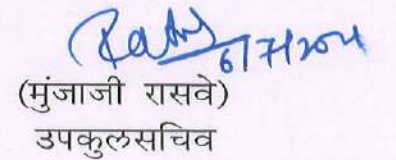 6/7/2024
(मुंजाजी रासवे)
उपकुलसचिव